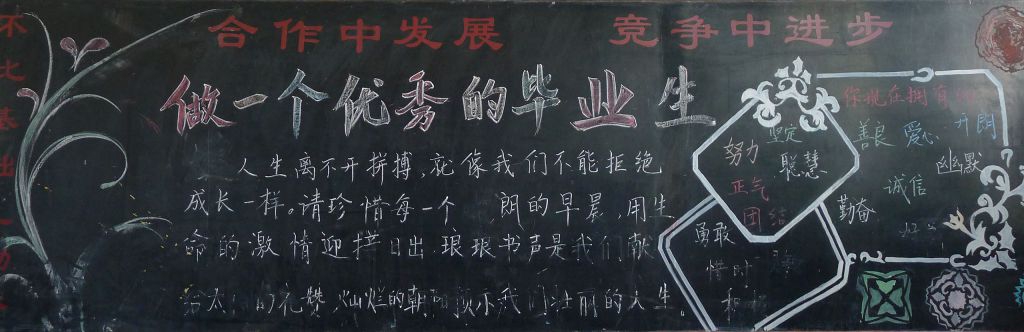 不比基出
合作中发展 竞争中进步
做一个优秀的毕业生
人生离不开拼搏,就像我们不能拒绝
成长一样。请珍惜每一个 朗的早晨,用生
命的激情迎接日出 琅琅书声是我们献
给太 的花 灿烂的朝 预示我们壮丽的人生。
努力 坚定
聪慧
正气
团结
勇敢
惜时
你现在拥有
善良 爱心 开朗
幽默
诚信
勤奋